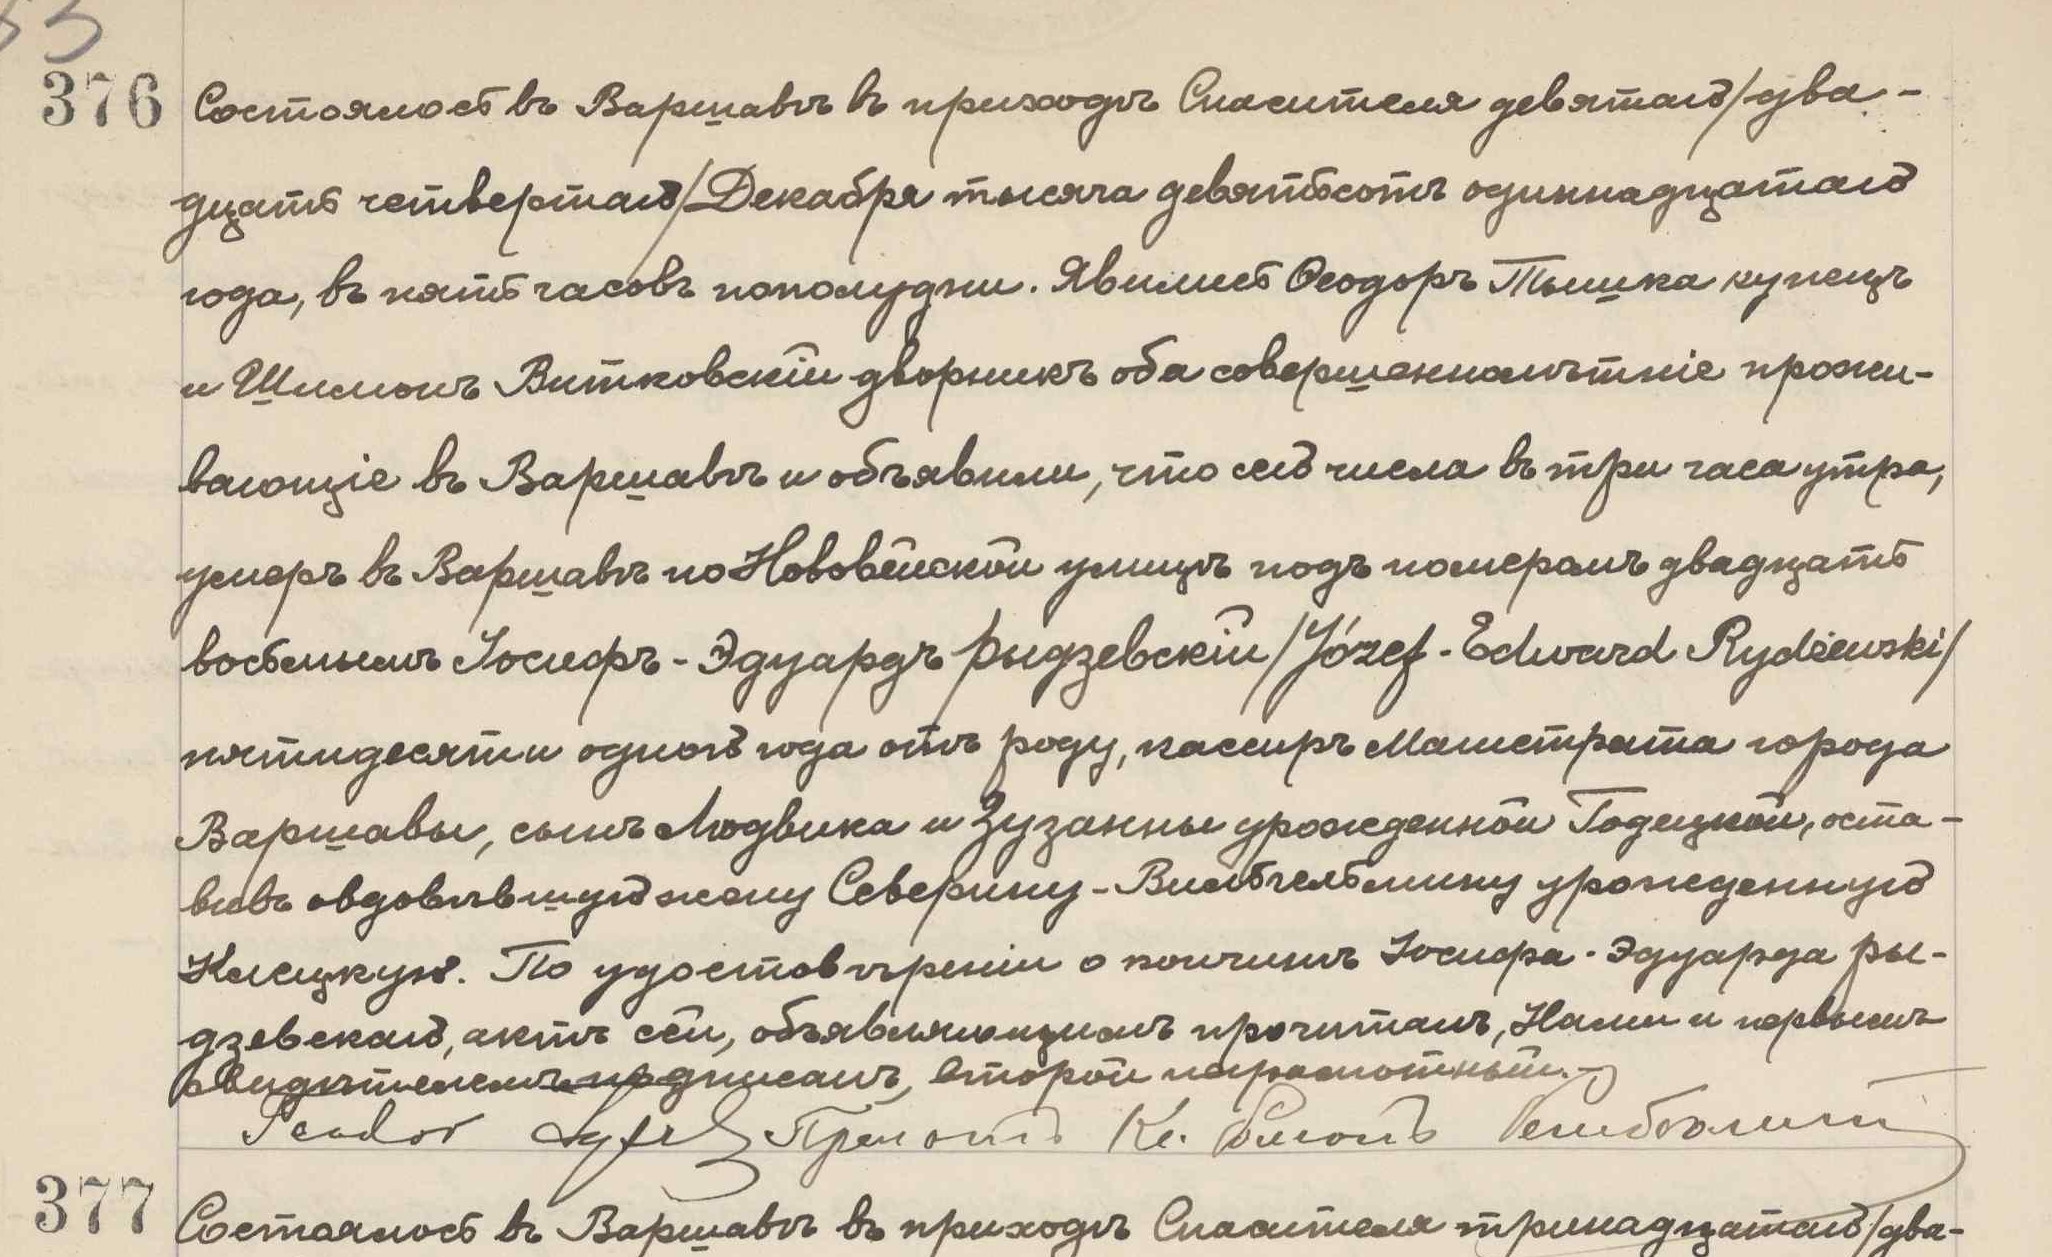 53
376 Состоялось въ Варшавѣ въ приходѣ Спасителя девятаго/два-
дцать четвертаго/Декабря тысяча девятьсотъ одиннадцатаго
года, въ пять часовъ пополудни. Явились Ѳеодоръ Тышка купецъ
и Шимонъ Витковскій дворникъ оба совершеннолѣтніе прожи-
вающіе въ Варшавѣ и объявили, что сего числа въ три часа утра,
умеръ въ Варшавѣ по Нововейской улицѣ подъ номеромъ двадцать
восьмымъ Іосифъ-Эдуардъ Рыдзевскій/Józef-Edward Rydzewski/
пятидесяти одного года отъ роду, кассиръ Магистрата города
Варшавы, сынъ Людвика и Зузанны урожденной Годецкой, оста-
вивъ овдовѣвшую жену Северину-Вильгельмину урожденную
Клецкую. По удостовѣреніи о кончинѣ Іосифа-Эдуарда Ры-
дзевскаго, актъ сей, объявляющимъ прочитанъ, Нами и первымъ
свидѣтелемъ подписанъ, второй неграмотный.
Teodor Кс.
377 Состоялось въ Варшавѣ въ приходѣ Спасителя тринадцатаго/два-